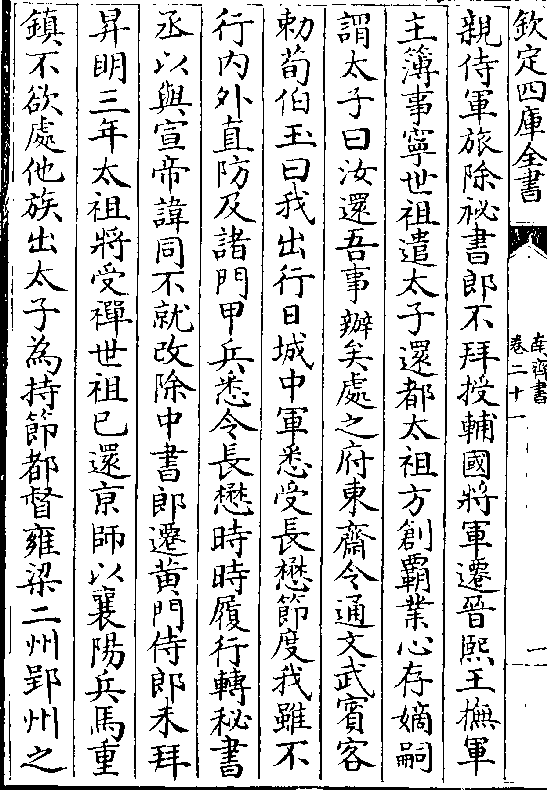 欽定四庫全書
南齊書
卷二十一
一
親侍軍旅除祕書郎不拜授輔國將軍遷晉熙王撫軍
主簿事寧世祖遣太子還都太祖方創霸業心存嫡嗣
謂太子曰汝還吾事辦矣處之府東齋令通文武賓客
勅荀伯玉曰我出行日城中軍悉受長懋節度我雖不
行内外直防及諸門甲兵悉令長懋時時履行轉秘書
丞以與宣帝諱同不就改除中書郎遷黃門侍郎未拜
昇明三年太祖將受禪世祖已還京師以襄陽兵馬重
鎮不欲處他族出太子為持節都督雍梁二州郢州之